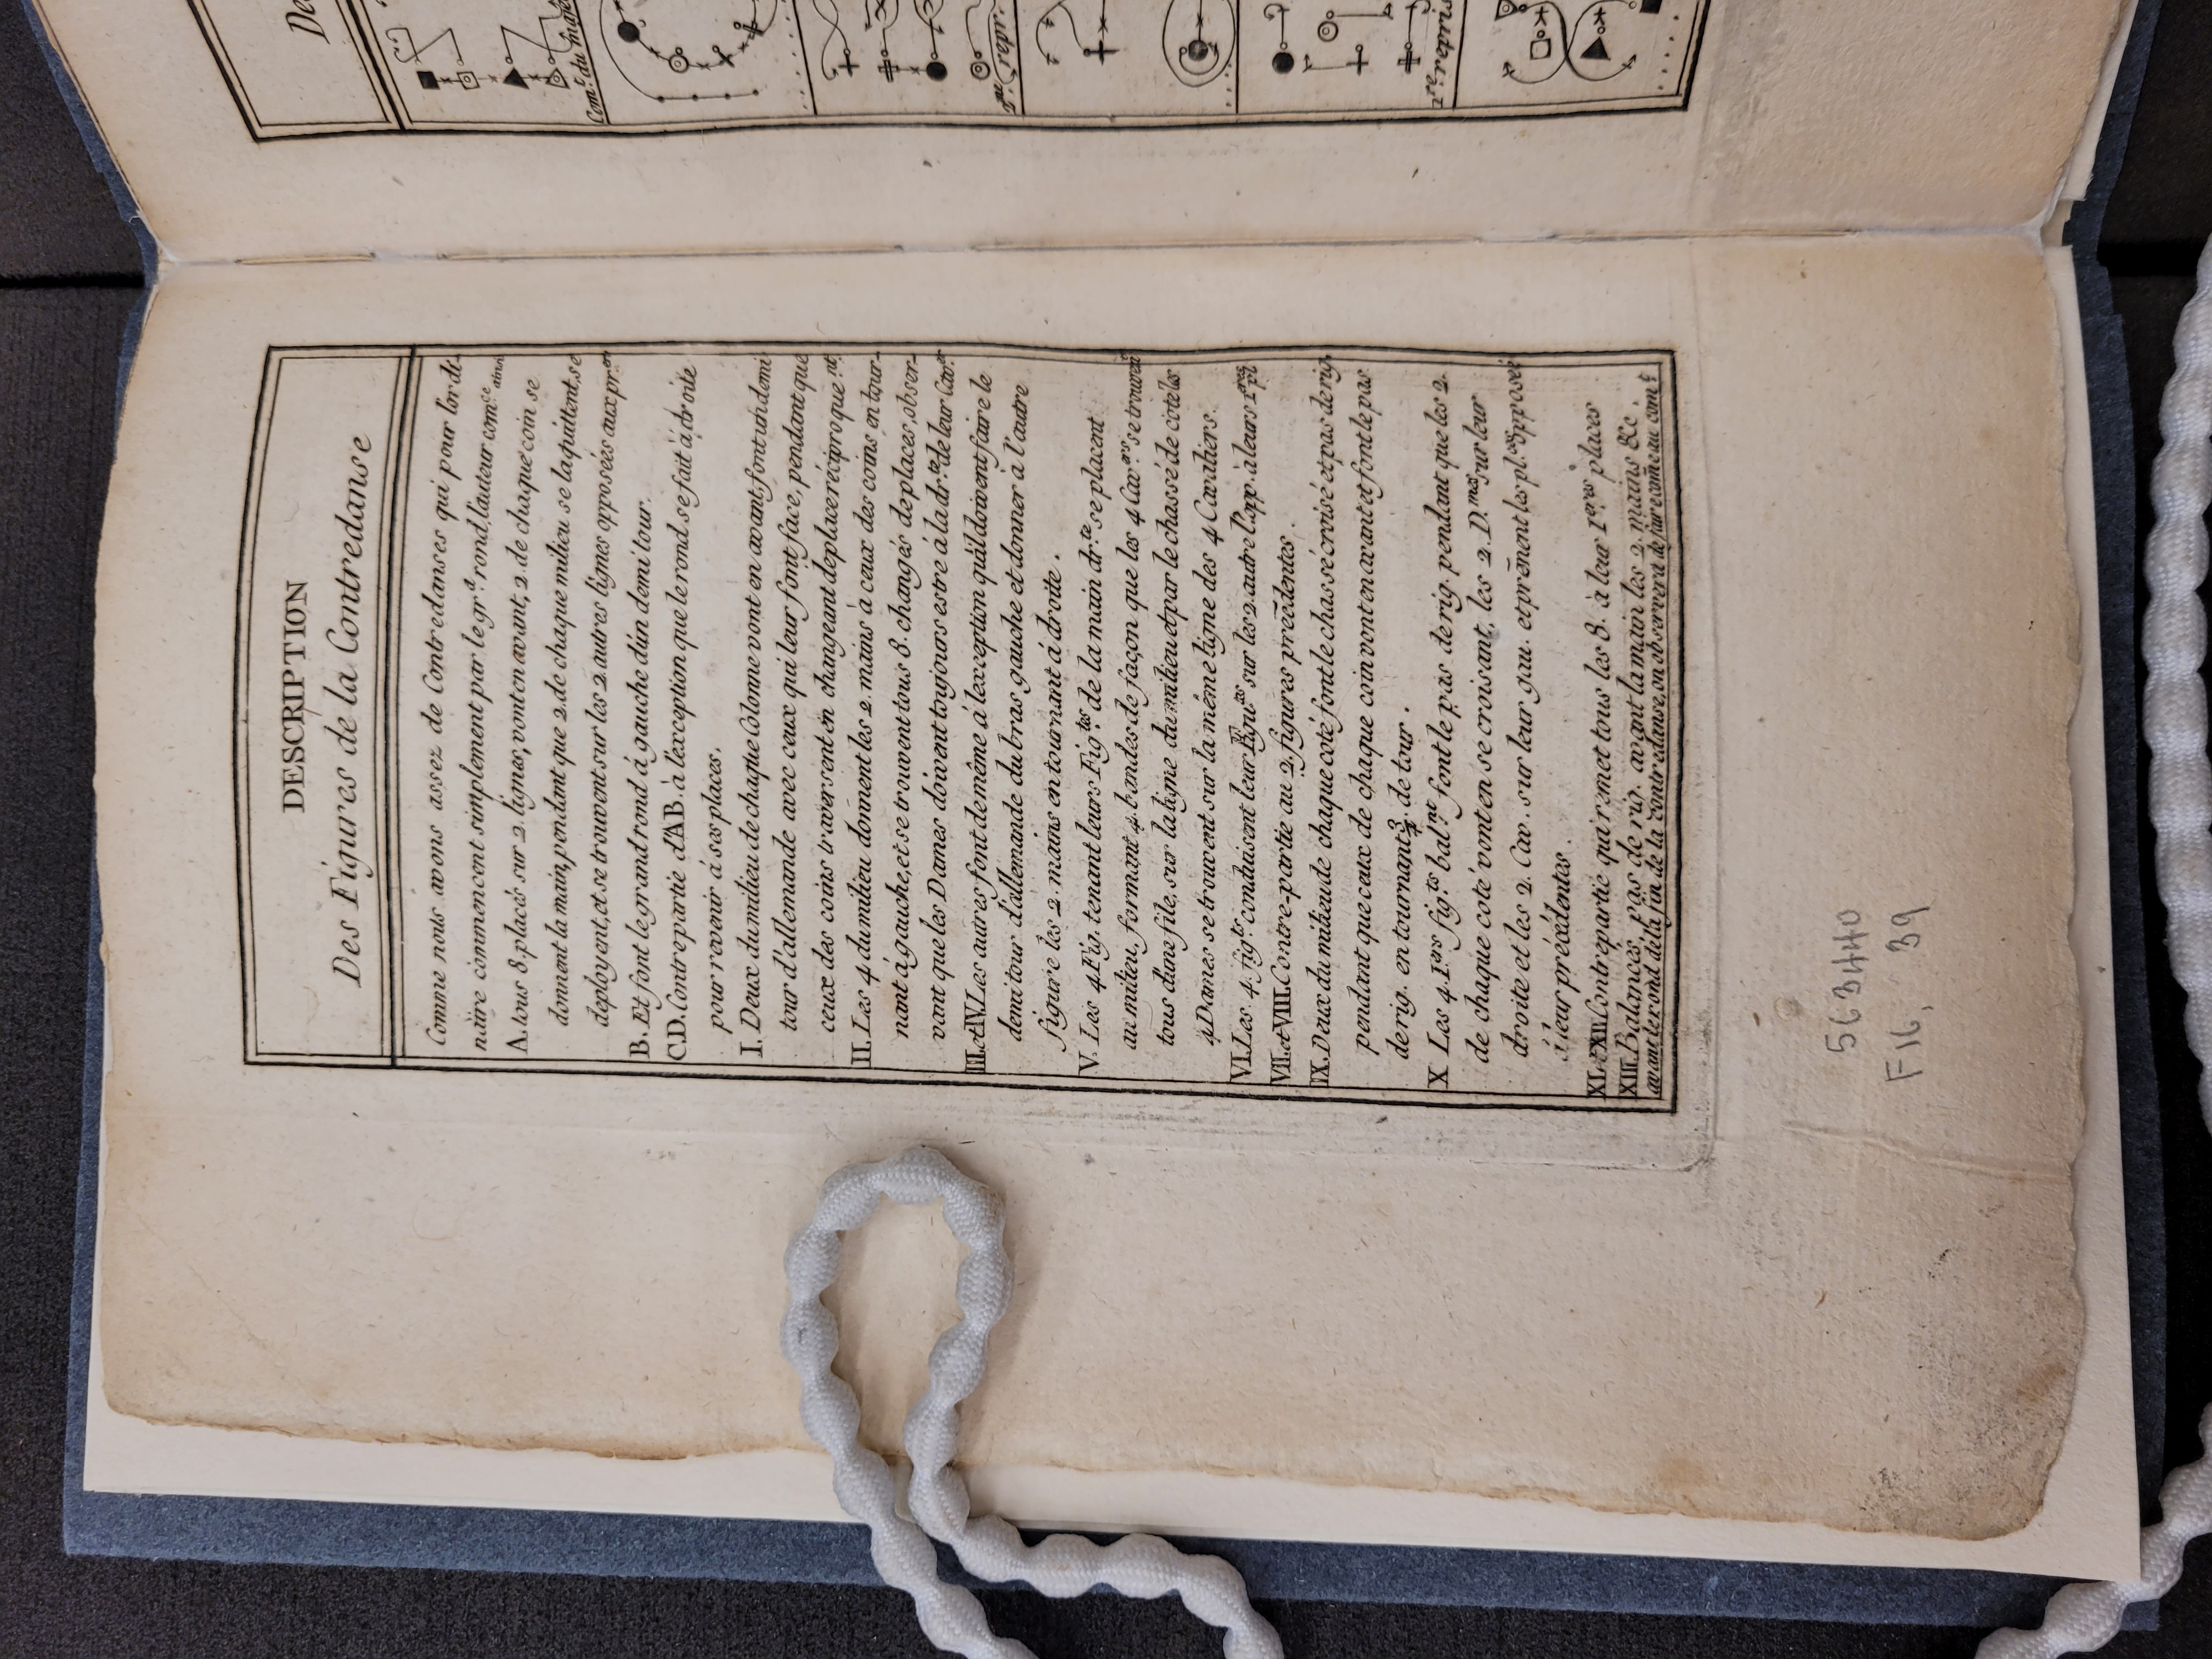 DESCRIPTION
Des Figures de la Contredanse
Comme nous avons assez de Contredanses qui pour l'ordi-
naire commencent simplement par le gr.d rond, l'auteur com.ce ainsi
A. tous 8. placés sur 2. lignes, vont en avant, 2. de chaque coin se
donnent la main, pendant que 2. de chaque milieu se la quittent, se
deployent, et se trouvent sur les 2. autres lignes opposées aux pr.es
B. Et font le grand rond á gauche d'un demi tour.
C.D. Contrepartie d'AB. à l'exception que le rond se fait à droite
pour revenir á ses places.
I. Deux du milieu de chaque Colonne vont en avant, font un demi
tour d'allemande avec ceux qui leur font face, pendant que
ceux des coins traversent en changeant de place réciproque.nt
II. Les 4 du milieu donnent les 2. mains à ceux des coins en tour-
nant á gauche, et se trouvent tous 8. changés de places, obser-
vant que les Dames doivent toujours estre á la dr.te de leur Cav.er
III. et IV. Les autres font de même á l'exception qu'il doivent faire le
demi tour d'allemande du bras gauche et donner à l'autre
figure les 2. mains en tournant á droite.
V. Les 4 Fig. tenant leurs Fig.tes de la main dr.te se placent
au milieu, formant 4. bandes de façon que les 4 Cav.ers se trouvent
tous d'une file, sur la ligne du milieu et par le chassé de coté les
4 Dames se trouvent sur la même ligne des 4 Cavaliers.
VI. Les 4. fig.ts conduisent leur Fig.tes sur les 2. autre l. opp. à leurs 1.eres pl.
VII. et VIII. Contre-partie au 2. figures précēdentes.
IX. Deux du milieu de chaque coté font le chassé croisé et pas de rig.
pendant que ceux de chaque coin vont en avant et font le pas
de rig. en tournant 3/4. de tour.
X Les 4. 1.ers fig.ts bal.nt font le pas de rig. pendant que les 2.
de chaque coté vont en se croisant, les 2. D.mes sur leur
droite et les 2. Cav. sur leur gau. et prēnent les pl. opposée
á leur précédentes.
XI. et XII. Contrepartie qui remet tous les 8. à leur 1.eres places
XIII. Balancés, pas de rig. avant la main les 2. mains &c.
avant le rond de la fin de la contredanse, on observera de faire com̄e au com.t
563440
F16, 39
De
Com.t du
repr.
1.re repris